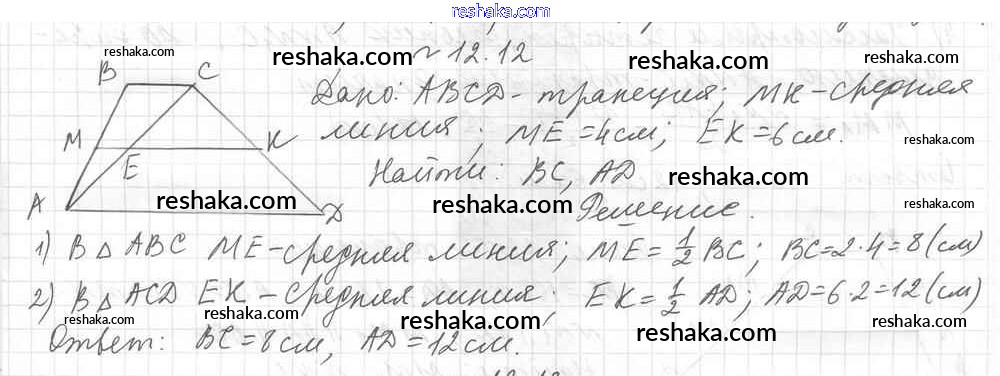 reshaka.com
№ 12.12
Дано: ABCD - трапеция; MK - средняя
линия; ME = 4 см; EK = 6 см.
Найти: BC, AD.
Решение.
B C
M E K
A D
1) В △ ABC ME - средняя линия; ME = 1/2 BC; BC = 2·4 = 8 (см)
2) В △ ACD EK - средняя линия; EK = 1/2 AD; AD = 6·2 = 12 (см)
Ответ: BC = 8 см, AD = 12 см.
reshaka.com
reshaka.com
reshaka.com
reshaka.com
reshaka.com
reshaka.com
reshaka.com
reshaka.com
reshaka.com
reshaka.com
reshaka.com
reshaka.com
reshaka.com
reshaka.com